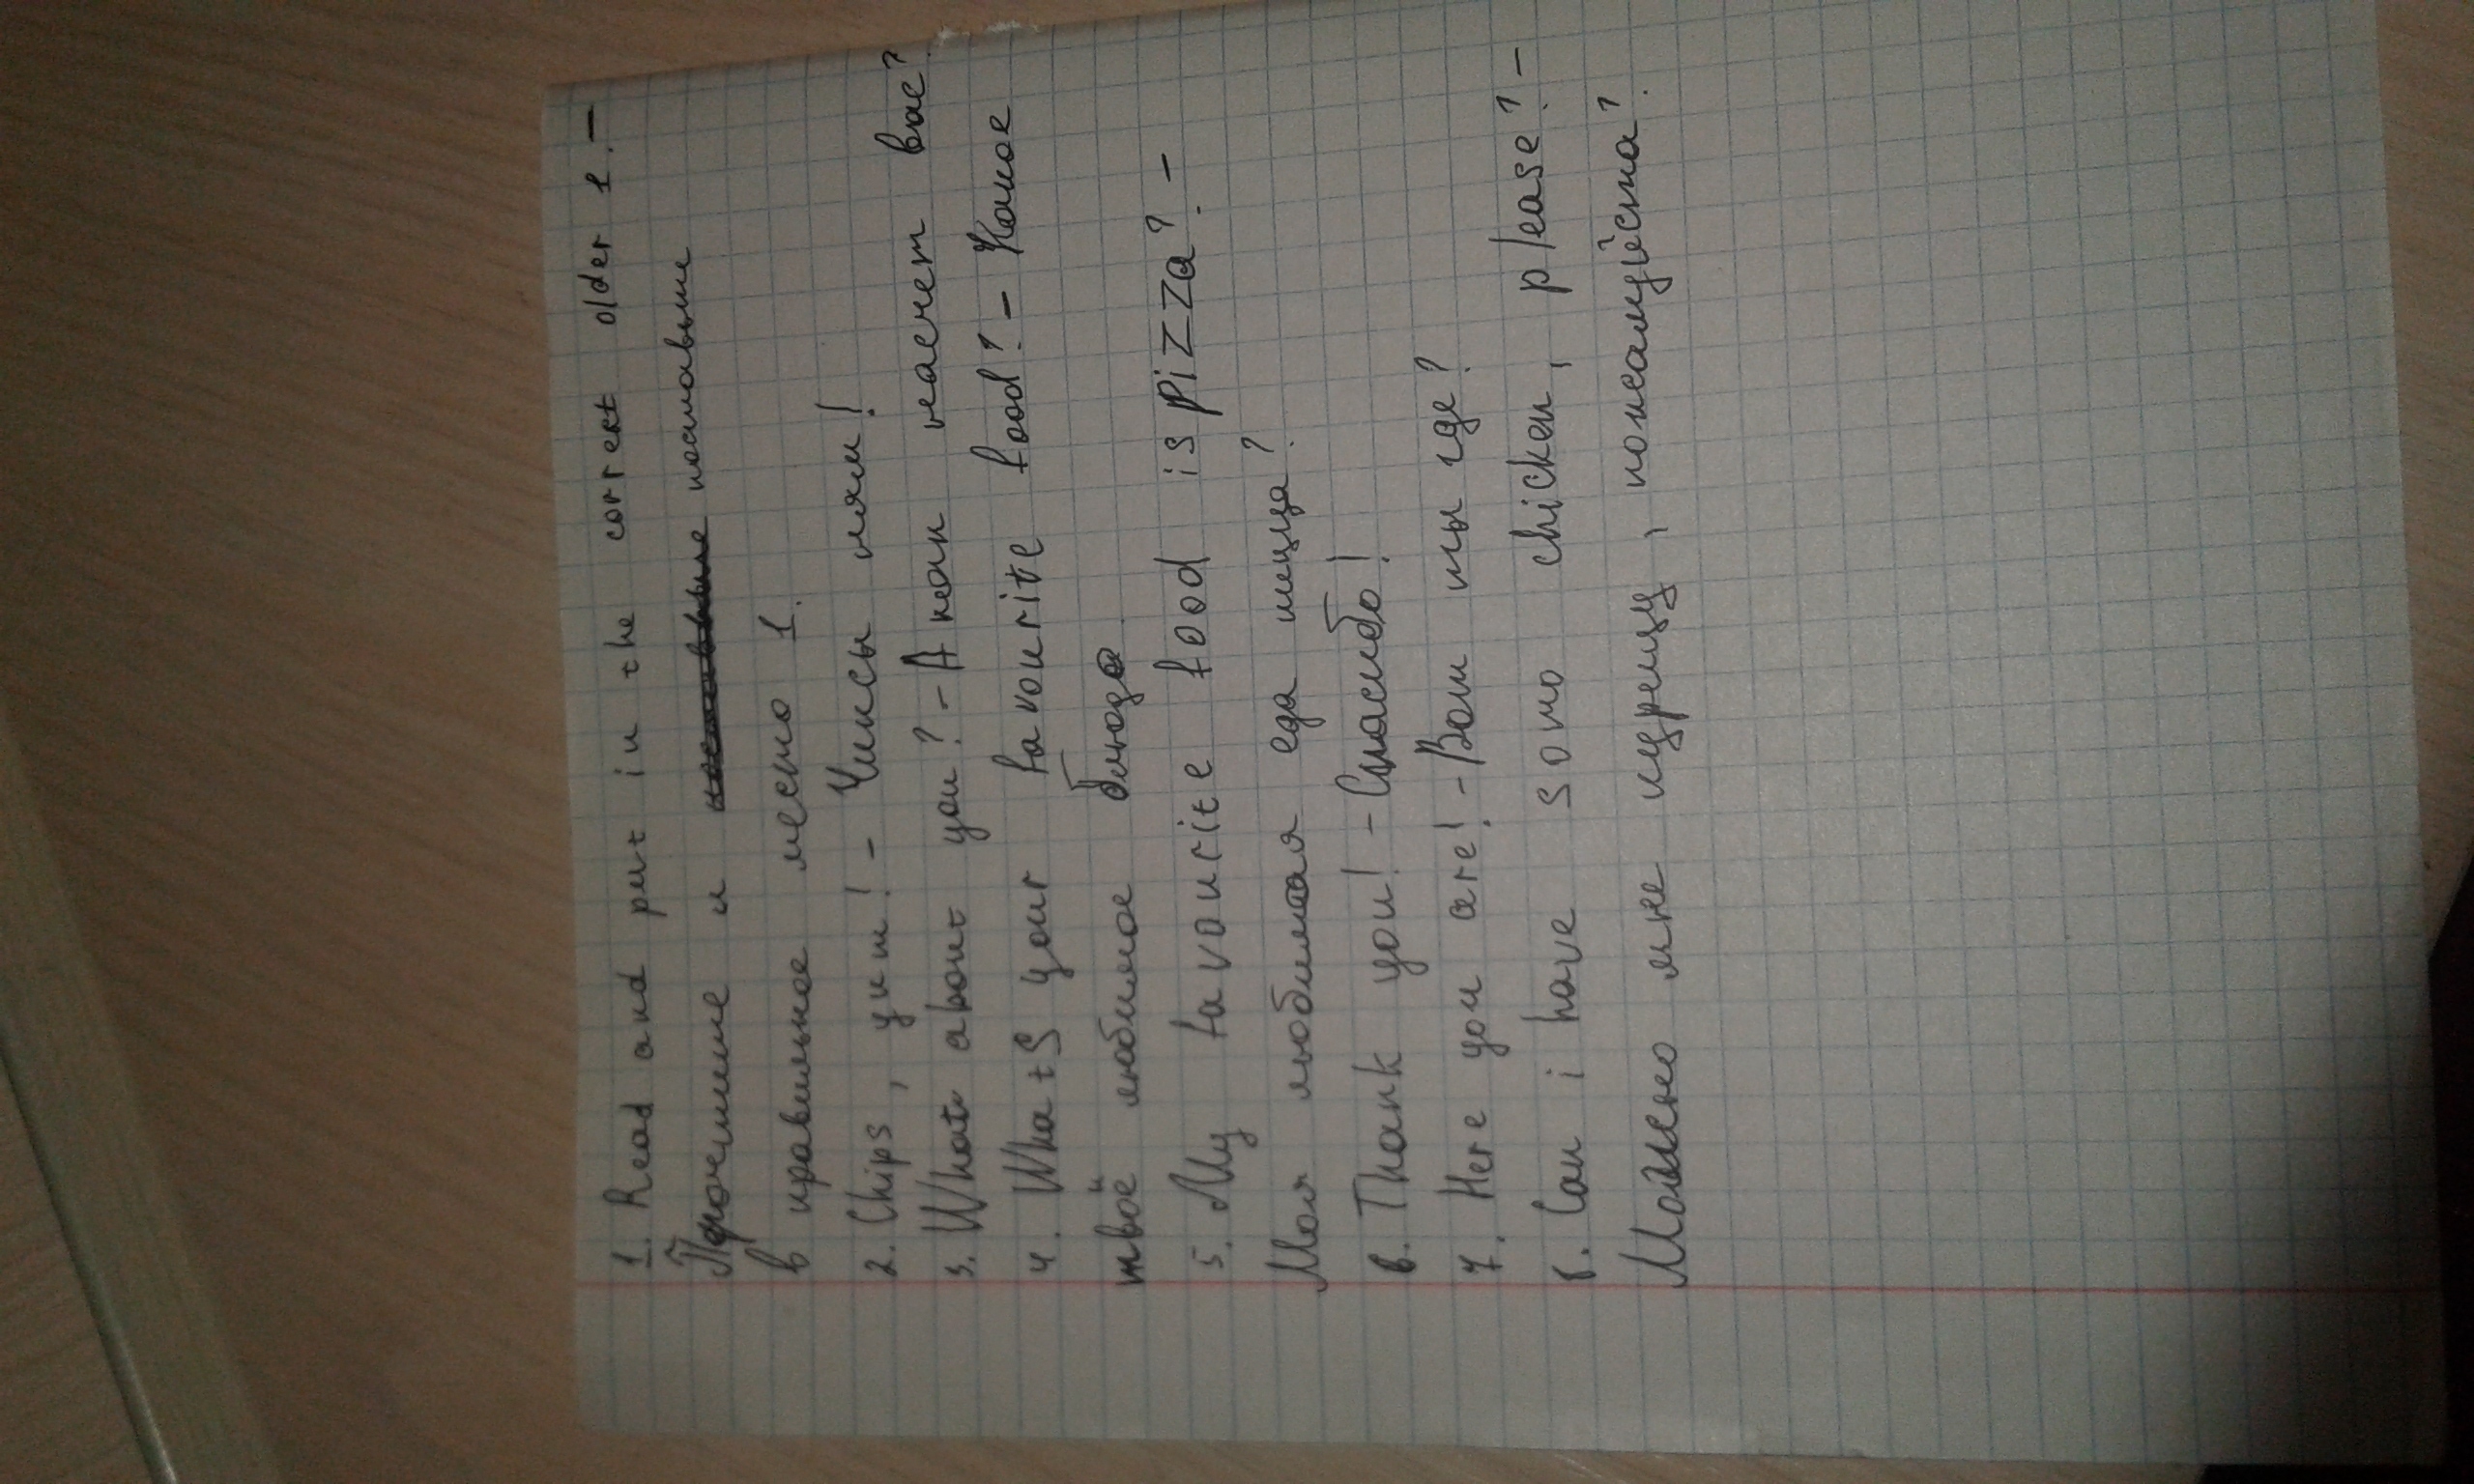 1. Read and put in the correct older 1. –
Прочитайте и поставьте
в правильное место 1.
2. Chips, yum! – Чипсы ням!
3. What about you? – А как насчет вас?
4. Whats your favourite food? – Какое
твоё любимое блюдо
5. My favourite food is pizza? –
Моя любимая еда пицца?
6. Thank you! – Спасибо!
7. Here you are! – Вот ты где?
8. Can i have somo chicken, please? –
Можно мне курицу, пожалуйста?